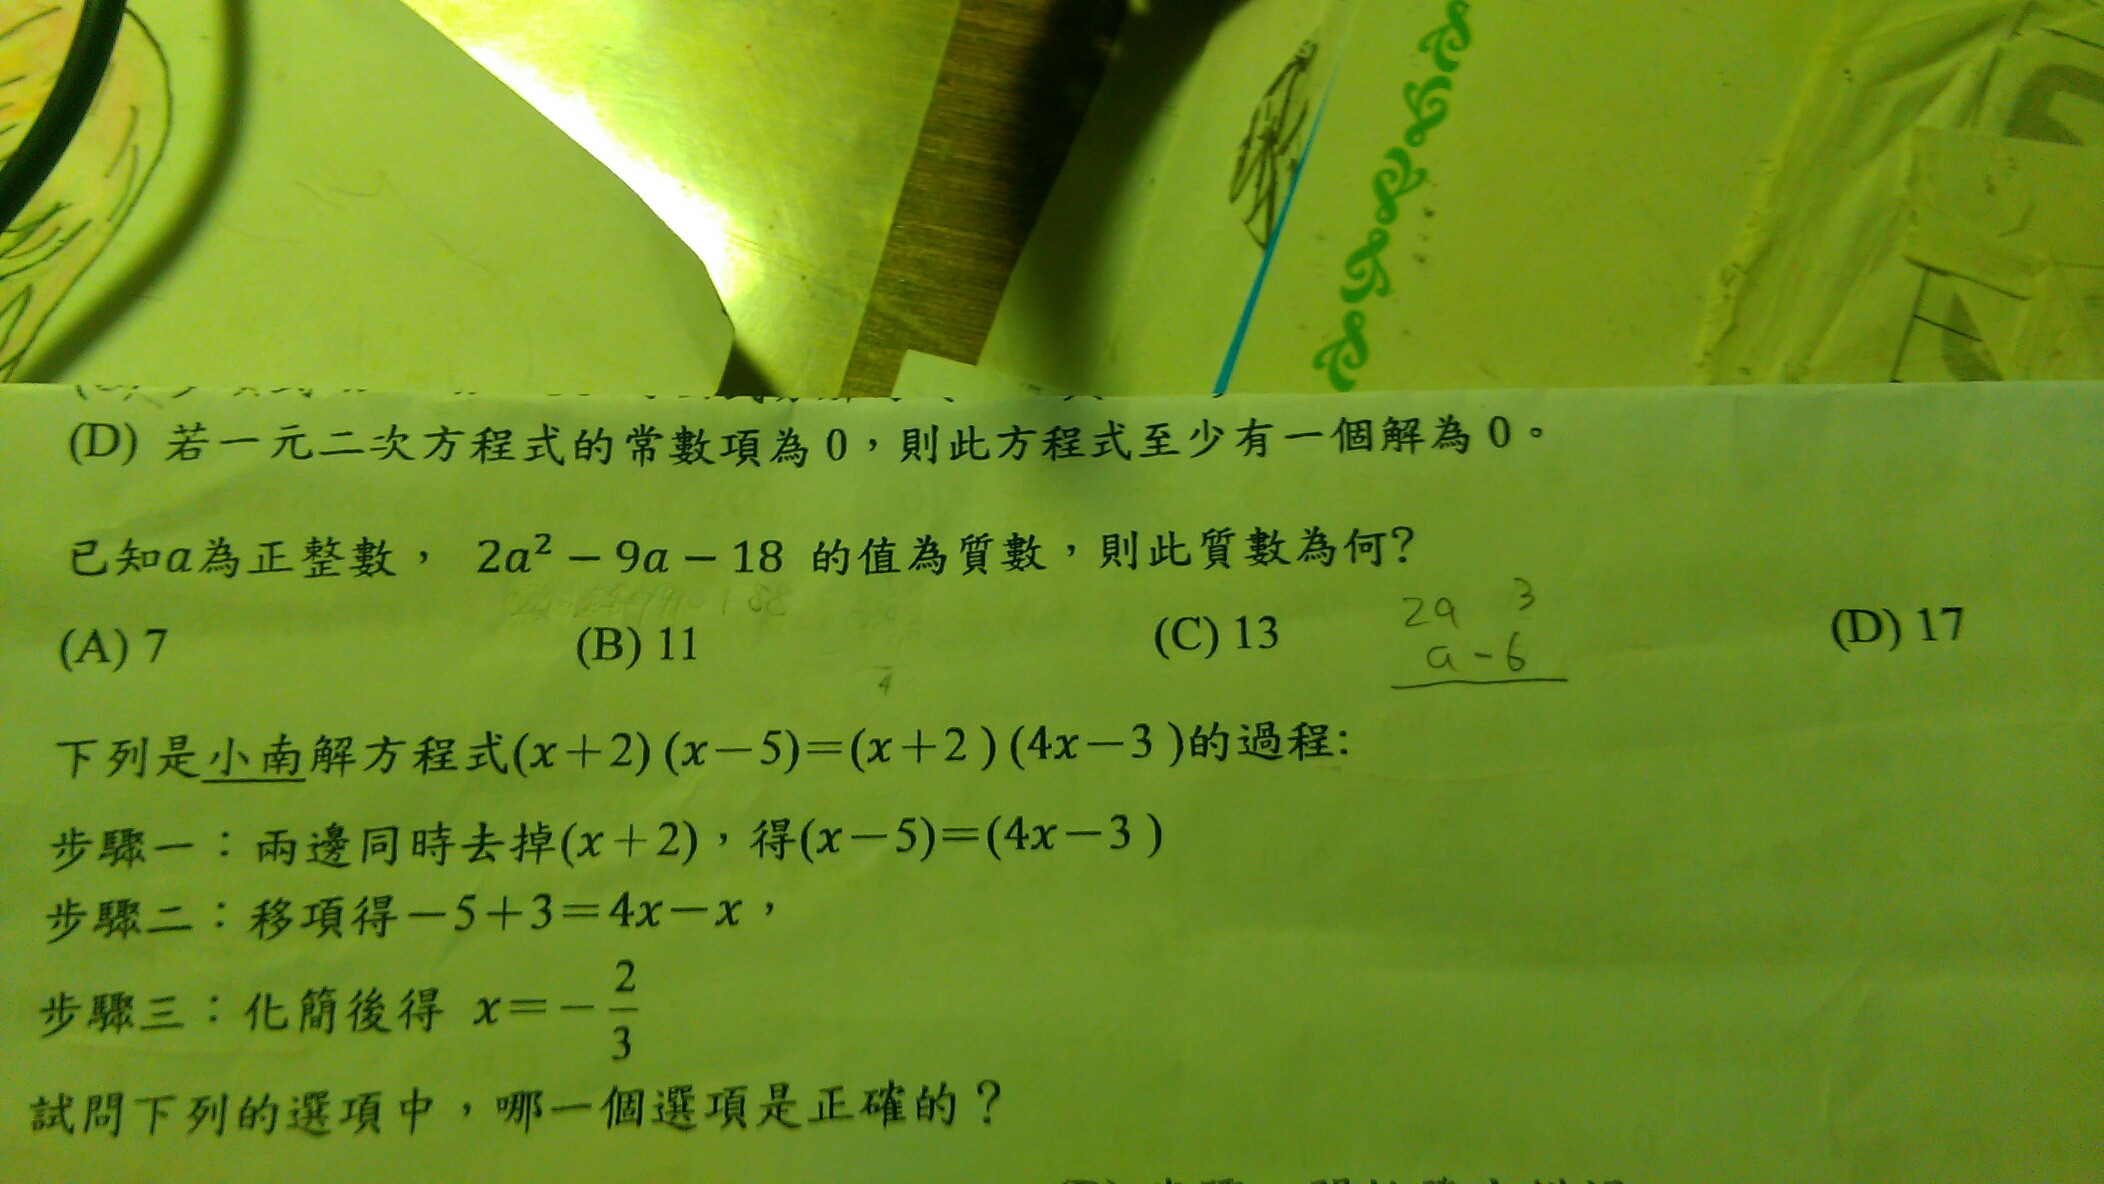 (D) 若一元二次方程式的常數項為 0，則此方程式至少有一個解為 0。
已知a為正整數， 2a² − 9a − 18 的值為質數，則此質數為何?
(A) 7 (B) 11 (C) 13 (D) 17
2a 3
a - 6
4
下列是小南解方程式(x＋2) (x－5)＝(x＋2 ) (4x－3 )的過程:
步驟一：兩邊同時去掉(x＋2)，得(x－5)＝(4x－3 )
步驟二：移項得－5＋3＝4x－x，
步驟三：化簡後得 x＝－2/3
試問下列的選項中，哪一個選項是正確的？